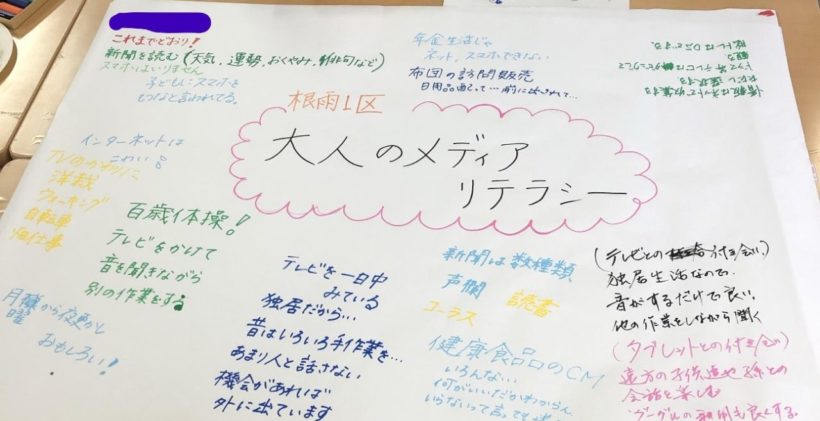 これまでどおり!
新聞を読む(天気、運勢、おくやみ、俳句など)
スマホはいりません
子どもにスマホを
もつなと言われてる。
年金生活じゃ
ネット、スマホできない
布団の訪問販売
日用品配って…前に出されて…
根雨1区
大人のメディア
リテラシー
インターネットは
こわい
TVのかわりに
洋裁
ウォーキング
自転車
畑仕事
百歳体操!
テレビをかけて
音を聞きながら
別の作業をする
月曜から夜更かし
おもしろい!
テレビを一日中
みている
独居だから…
昔はいろいろ手作業を…
あまり人と話さない
機会があれば
外に出ています
新聞は数種類
声欄
読書
コーラス
健康食品のCM
いろんな…
何がいいだかわからん
いらないって言っても
(テレビとの付き会い)
独居生活なので、
音がするだけで良い、
他の作業をしながら聞く
(タブレットとの付き会い)
遠方の子供達や孫との
会話を楽しむ
グーグルの利用も良くする。